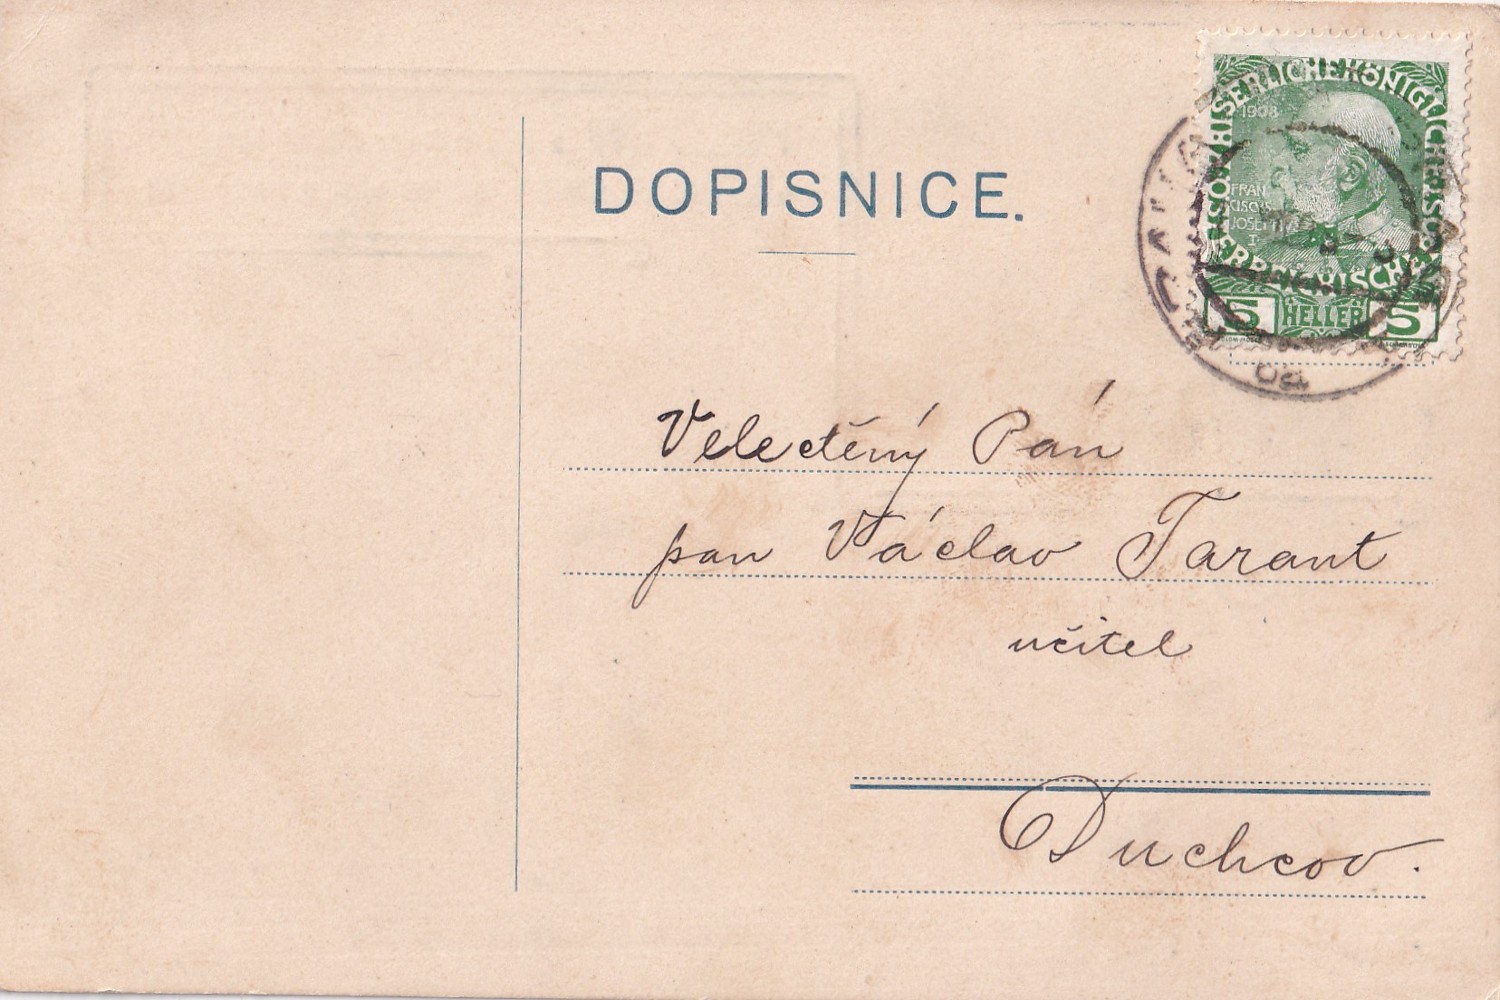 DOPISNICE.
KAISERLICHE KÖNIGLICHE
ÖSTERREICHISCHE POST
1908
FRAN
CISCVS
JOSEF
I
5 HELLER 5
Velectěný Pán
pan Václav Tarant
učitel
Duchcov.